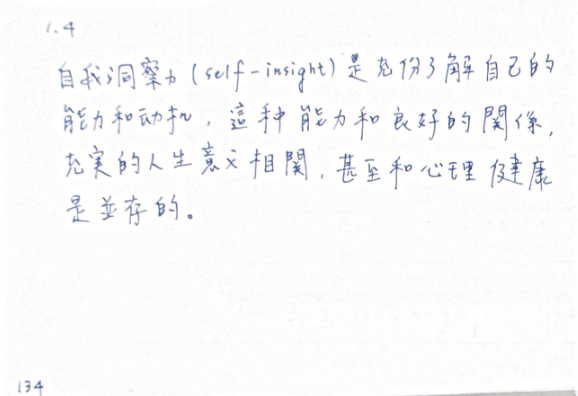 1.4
自我洞察力（self-insight）是充份了解自己的
能力和动机，這种能力和良好的関係，
充実的人生意义相関，甚至和心理健康
是並存的。
134